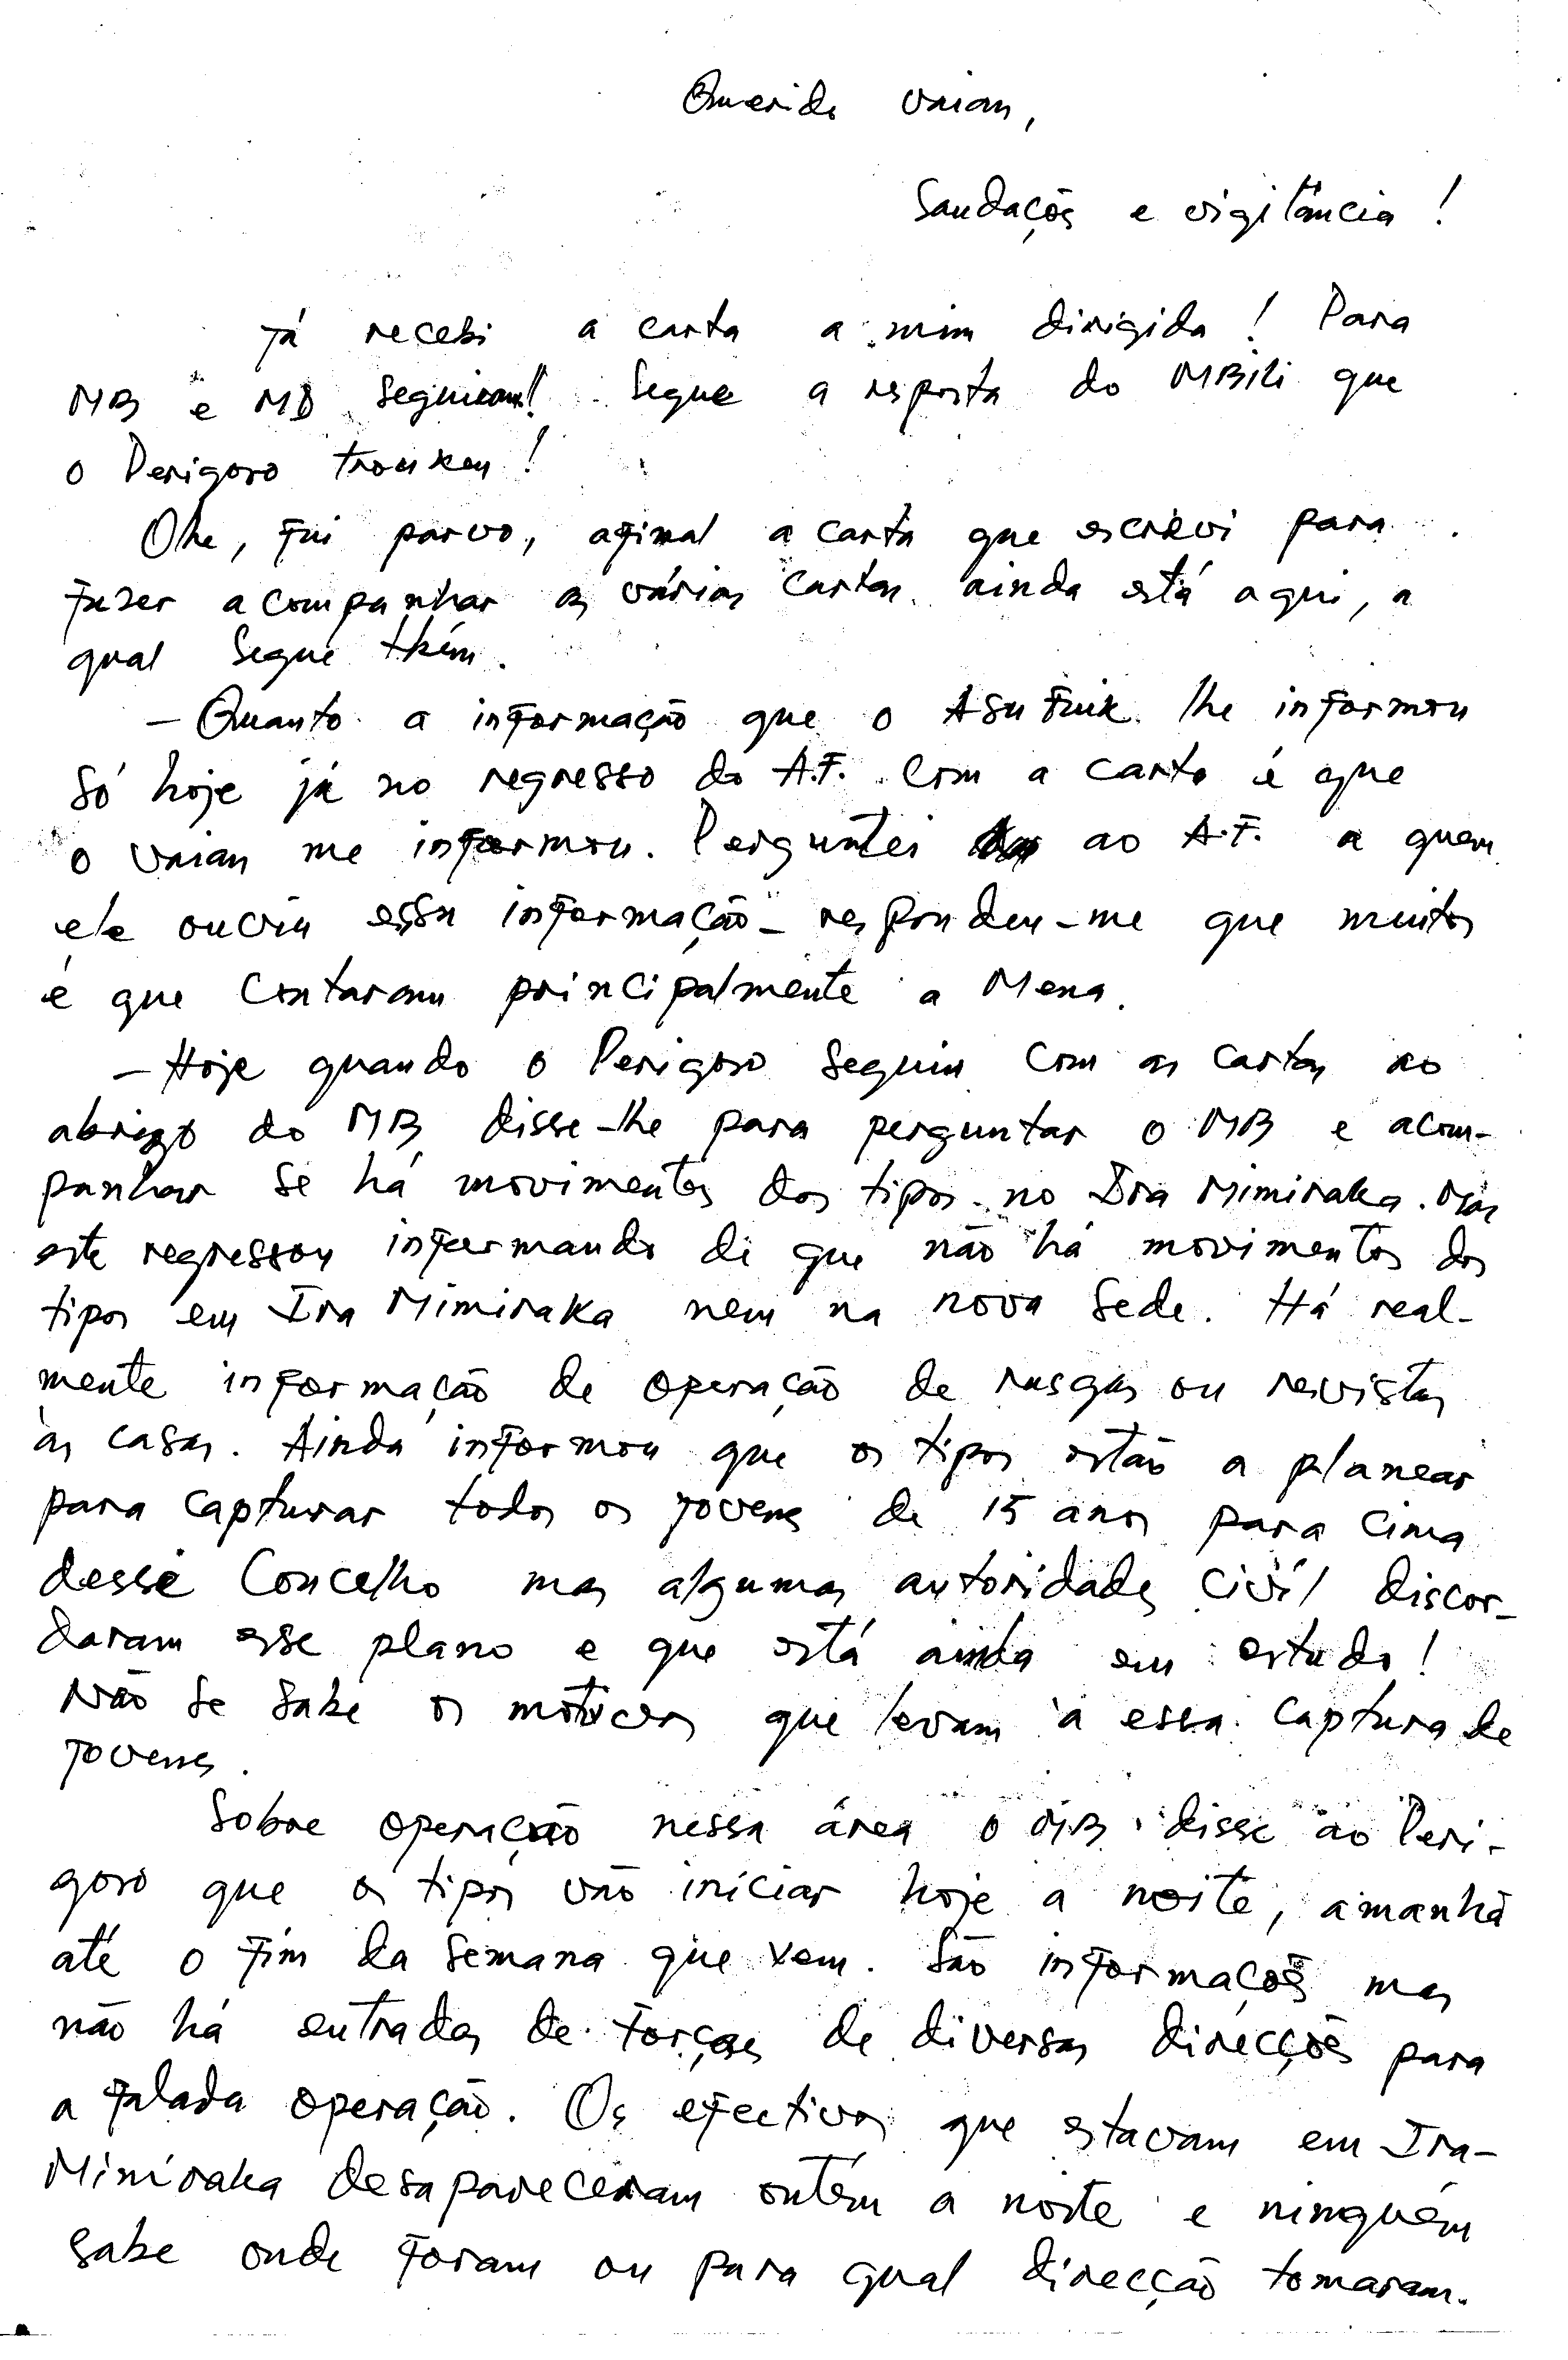 Querido Vaian,
Saudações e vigilância!
Já recebi a carta a mim dirigida! Para
MB e MD seguiram! Segue a resposta do MBili que
o Perigoso trouxeu!
Olhe, fui parvo, afinal a carta que escrevi para
fazer acompanhar as várias cartas ainda está aqui, a
qual segue tbém.
- Quanto a informação que o Asu Fuik lhe informou
só hoje já no regresso do A.F. com a carta é que
o Vaian me informou. Perguntei ao A.F. a quem
ele ouviu essa informação - respondeu-me que muitos
é que contaram principalmente a Mena.
- Hoje quando o Perigoso seguiu com as cartas ao
abrigo do MB disse-lhe para perguntar o MB e acom-
panhar se há movimentos dos tipos no Ira Mimiraka. Mas
este regressou informando di que não há movimentos dos
tipos em Ira Mimiraka nem na nova sede. Há real-
mente informação de operação de rusgas ou revistas
às casas. Ainda informou que os tipos estão a planear
para capturar todos os jovens de 15 anos para cima
desse Concelho mas algumas autoridades civíl discor-
daram esse plano e que está ainda em estudo!
Não se sabe os motivos que levam à essa captura de
jovens.
Sobre operação nessa área o MB disse ao Peri-
goso que os tipos vão iniciar hoje a noite, amanhã
até o fim da semana que vem. São informações mas
não há entradas de forças de diversas direcções para
a falada operação. Os efectivos que estavam em Ira-
Miniraka desapareceram ontém a noite e ninguém
sabe onde foram ou para qual direcção tomaram.